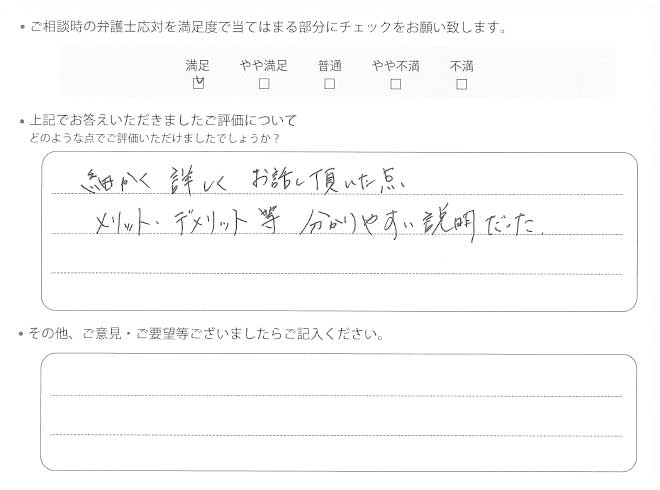 ・ご相談時の弁護士応対を満足度で当てはまる部分にチェックをお願い致します。
満足 やや満足 普通 やや不満 不満
・上記でお答えいただきましたご評価について
どのような点でご評価いただけましたでしょうか？
細かく 詳しく お話し頂いた点、
メリット・デメリット等 分かりやすい説明だった.
・その他、ご意見・ご要望等ございましたらご記入ください。